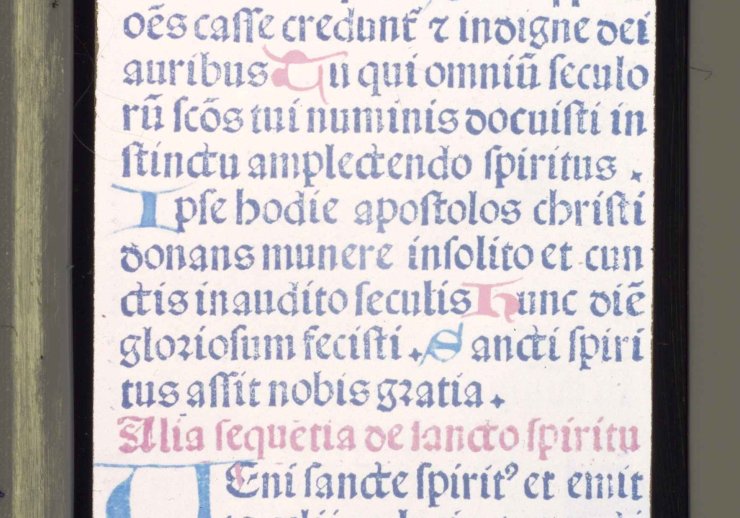 oēs casse credunt̄ ⁊ indigne dei
auribus Tu qui omniū seculo
rū scōs tui numinis docuisti in
stinctu amplectendo spiritus .
Ipse hodie apostolos christi
donans munere insolito et cun
ctis inaudito seculis Hunc diē
gloriosum fecisti . Sancti spiri
tus assit nobis gratia .
Alia sequētia de sancto spiritu
VEni sancte spiritꝰ et emit